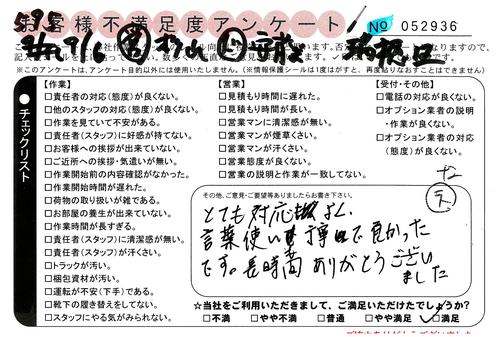 お客様不満足度アンケート
No 052936
7/6
※このアンケートは、アンケート目的以外には使用いたしません。(※情報保護シールは1度はがすと、再度貼りなおすことはできません)
チェックリスト
【作業】
□責任者の対応(態度)が良くない。
□他のスタッフの対応(態度)が良くない。
□作業を見ていて不安がある。
□責任者(スタッフ)に好感が持てない。
□お客様への挨拶が出来ていない。
□ご近所への挨拶・気遣いが無い。
□作業開始前の内容確認がなかった。
□作業開始時間が遅れた。
□荷物の取り扱いが雑である。
□お部屋の養生が出来ていない。
□作業時間が長すぎる。
□責任者(スタッフ)に清潔感が無い。
□責任者(スタッフ)が汗くさい。
□トラックが汚い。
□梱包資材が汚い。
□運転が不安(下手)である。
□靴下の履き替えをしてない。
□スタッフにやる気がみられない。
【営業】
□見積もり時間に遅れた。
□見積もり時間が長い。
□営業マンに清潔感が無い。
□営業マンが煙草くさい。
□営業マンが汗くさい。
□営業態度が良くない。
□営業の説明と作業が一致してない。
【受付・その他】
□電話の対応が良くない。
□オプション業者の説明
・作業が良くない。
□オプション業者の対応
(態度)が良くない。
その他、ご意見・ご要望等ありましたらお書き下さい。
とても対応よく、
言葉使いも
良かった
です。長時間ありがとうござい
ました
☆当社をご利用いただきまして、ご満足いただけたでしょうか?
□不満 □やや不満 □普通 □やや満足 □満足